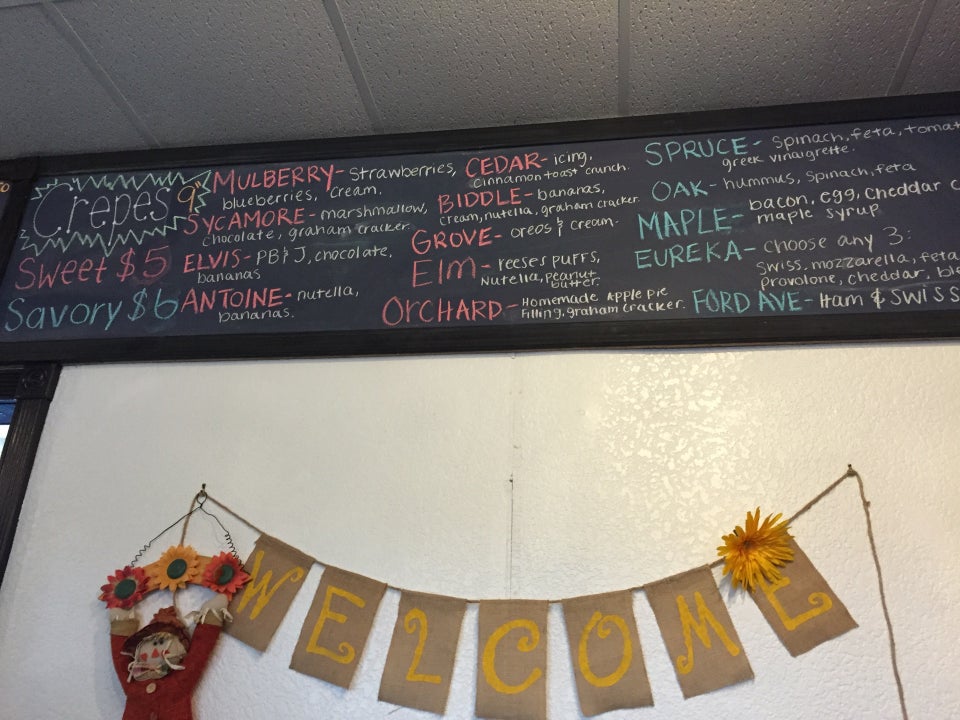 Crepes 9"
Sweet $5
Savory $6
MULBERRY- strawberries,
blueberries, cream.
SYCAMORE- marshmallow,
chocolate, graham cracker.
ELVIS- PB & J, chocolate,
bananas
ANTOINE- nutella,
bananas.
CEDAR- icing,
cinnamon toast crunch.
BIDDLE- bananas,
cream, nutella, graham cracker.
GROVE- oreos & cream.
ElM- reeses puffs,
Nutella, peanut
butter.
ORCHARD- Homemade Apple pie
filling, graham cracker.
SPRUCE- spinach, feta, tomat
greek vinaigrette.
OAK- hummus, spinach, feta
MAPLE- bacon, egg, cheddar c
maple syrup
EUREKA- choose any 3:
swiss, mozzarella, feta
provolone, cheddar, ble
FORD AVE- Ham & swiss
WELCOME